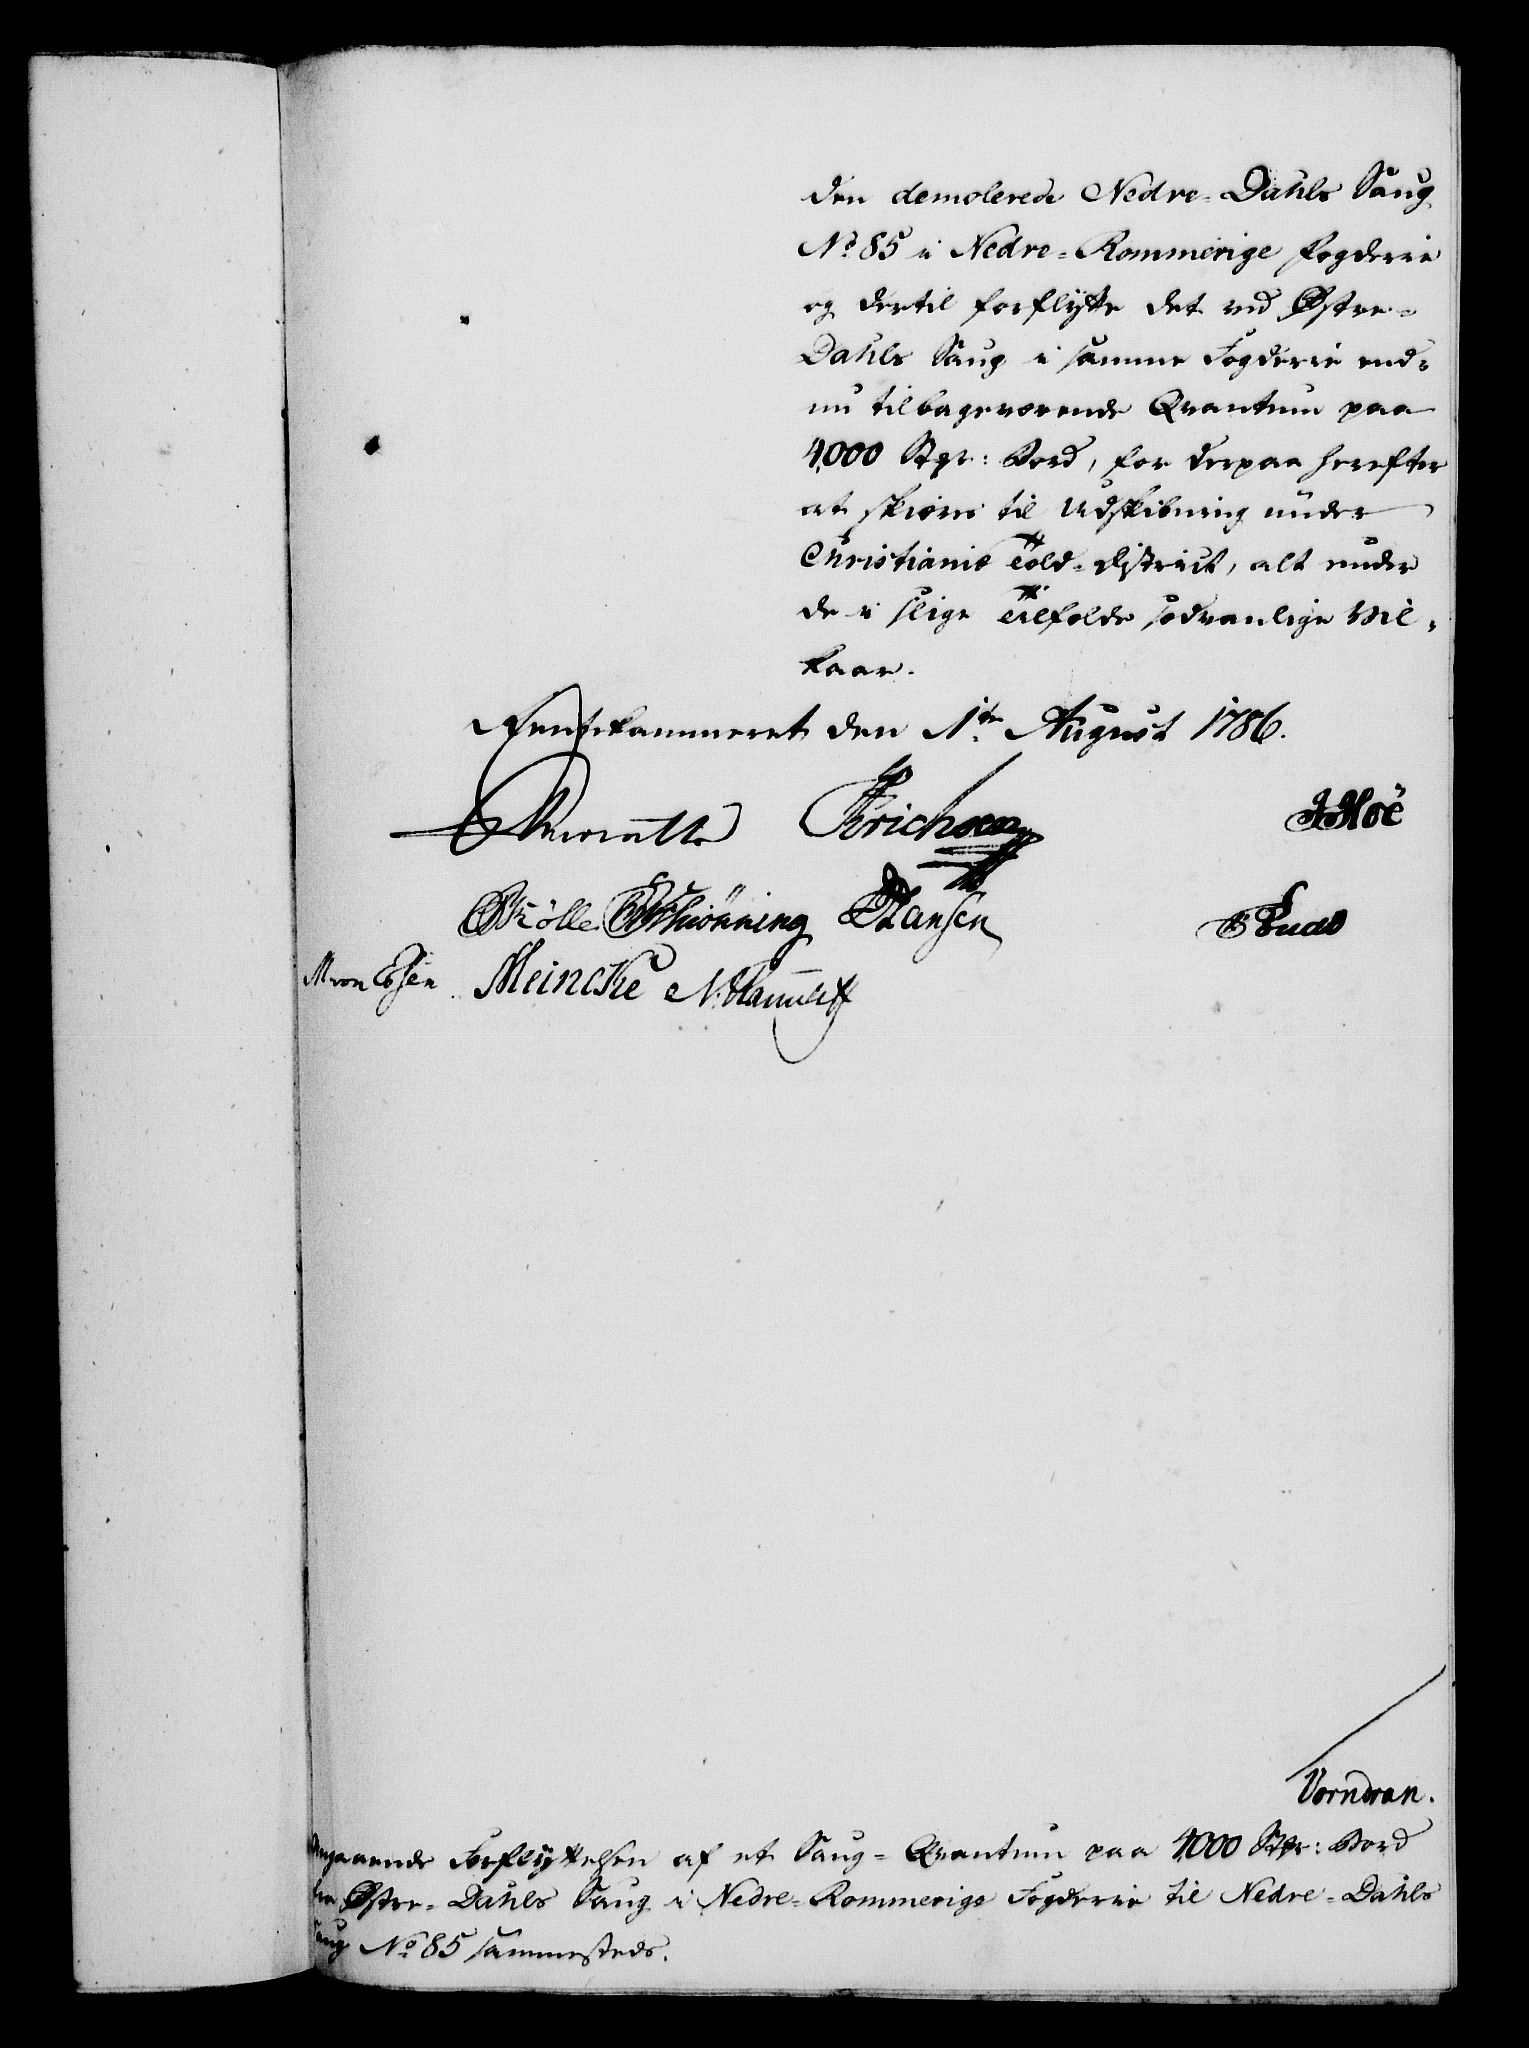 den demolerede Nedre-Dahls Saug
No 85 i Nedre-Rommerige Fogderie
og dertil forflytte det ved Østre-
Dahls Saug i samme Fogderie end-
nu tilbageværende Qvantum paa
4000 Stpr: Bord, for derpaa herefter
at skiære til Udskibning under
Christianiæ Told-District, alt under
de i slige Tilfælde sædvanlige Vil-
kaar.
Rentekammeret den 1te August 1786.
Erichsen Hoë
Mölle Schiönning Hansen
M von Essen Meincke
Vorndran.
Angaaende Forflyttelsen af et Saug-Qvantum paa 4000 Stpr: Bord
fra Østre-Dahls Saug i Nedre-Rommerige Fogderie til Nedre-Dahls
Saug No 85 sammesteds.